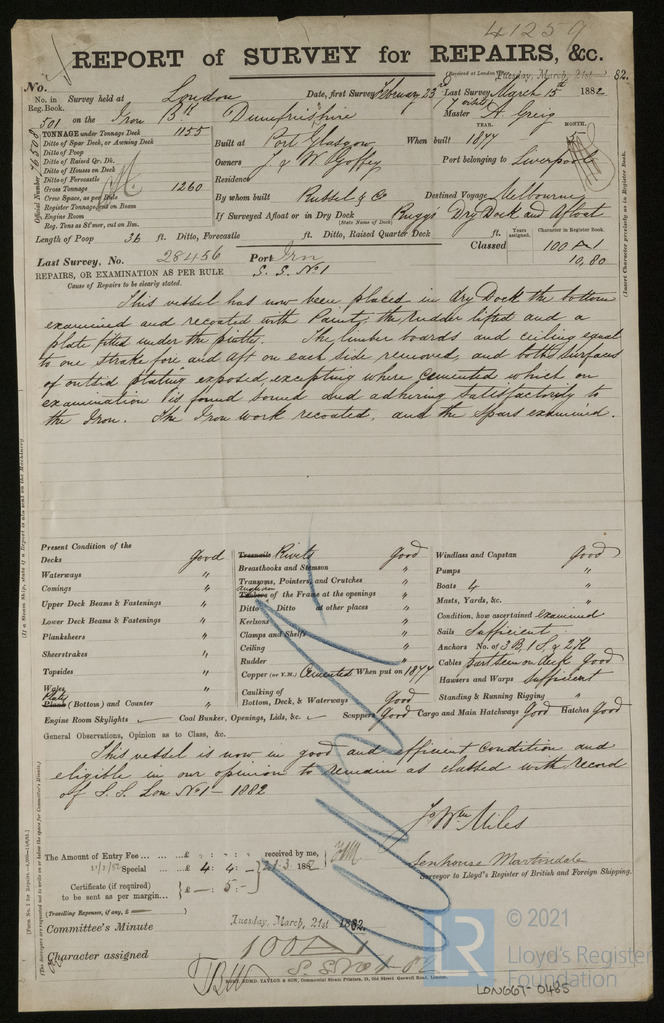 41259
REPORT of SURVEY for REPAIRS, &c.
(Received at London Office, Tuesday, March, 21st 82.
No.
No. in Reg. Book. Survey held at London Date, first Survey February 23rd Last Survey March 15th 1882
501 on the Iron Bk Dumfriesshire Master A. Greig
TONNAGE under Tonnage Deck 1155
Ditto of Spar Deck, or Awning Deck
Ditto of Poop
Ditto of Raised Qr. Dk.
Ditto of Houses on Deck
Ditto of Forecastle
Gross Tonnage 1260
Crew Space, as per Rule
Register Tonnage
Engine Room
Reg. Tons as St'mer, cut on Bm.
Official Number 76508
YEAR. MONTH.
Built at Port Glasgow When built 1877
Owners J. & W. Goffey Port belonging to Liverpool
Residence
By whom built Russel & Co Destined Voyage Melbourne
If Surveyed Afloat or in Dry Dock Buggs Dry Dock and Afloat
(State Name of Dock)
Length of Poop 36 ft. Ditto, Forecastle ft. Ditto, Raised Quarter Deck ft.
Years assigned. Character in Register Book.
Classed 100 A 1
10,80
Last Survey, No. 28456 Port Irn
S. S. No 1
REPAIRS, OR EXAMINATION AS PER RULE
Cause of Repairs to be clearly stated.
(Insert Character precisely as in Register Book.)
This vessel has now been placed in dry Dock the bottom
examined and recoated with Paint, the rudder lifted and a
plate fitted under the pintle. The limber boards and ceiling equal
to one strake fore and aft on each side removed, and both surfaces
of outside plating exposed, excepting where cemented which on
examination is found sound and adhering satisfactorily to
the Iron. The Iron work recoated, and the spars examined.
Present Condition of the
Decks good
Waterways "
Comings "
Upper Deck Beams & Fastenings "
Lower Deck Beams & Fastenings "
Planksheers "
Sheerstrakes "
Topsides "
Wales "
Plates
Plank (Bottoms) and Counter "
Treenails Rivets Good
Breasthooks and Stemson "
Transoms, Pointers, and Crutches "
Timbers of the Frame at the openings "
Ditto Ditto at other places "
Keelsons "
Clamps and Shelfs "
Ceiling "
Rudder "
Copper (or Y.M.) Cemented When put on 1877
Caulking of
Bottom, Deck, & Waterways Good
Windlass and Capstan Good
Pumps "
Boats 4 "
Masts, Yards, &c. "
Condition, how ascertained examined
Sails Sufficient
Anchors No. of 3 B, 1 S, & 2 K
Cables part seen on deck Good
Hawsers and Warps sufficient
Standing & Running Rigging "
Engine Room Skylights Coal Bunker, Openings, Lids, &c. Scuppers Good Cargo and Main Hatchways Good Hatches Good
General Observations, Opinion as to Class, &c.
This vessel is now in good and efficient condition and
eligible in our opinion to remain as classed with record
of S. S. Lon No 1 - 1882
Jo Wm Miles
Senhouse Martindale
Surveyor to Lloyd's Register of British and Foreign Shipping.
The Amount of Entry Fee ... £ : : received by me,
Special ... £ 4: 4: - 21.3.1882
Certificate (if required) £ -: 5: -
to be sent as per margin...
(Travelling Expenses, if any, £
Committee's Minute Tuesday, March, 21st 1882.
Character assigned 100 A 1
S.S No 1 - 82
PORT, EDMD. TAYLOR & SON, Commercial Steam Printers, London.
© 2021
LR
Lloyd's Register
Foundation
LON667-0485